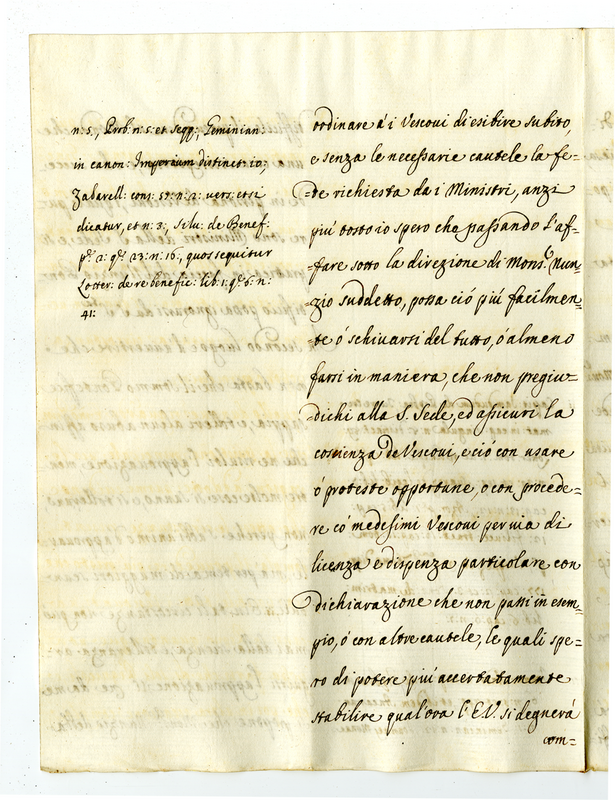 n: 5., Prob: n: 5: et seqq:, Geminian:
in canon: Imperium distinct: 10;
Zabarell: cons: 57: n: 2: vers: et si
dicatur, et n: 3:, Silu: de Benef:
p.e 2: q.e 23: n: 16:, quos sequitur
Lotter: de re benefic: lib: 1: q.e 6: n:
41:
ordinare à i Vescoui di esibire subito,
e senza le necessarie cautele la fe=
=de richiesta da i Ministri, anzi
più tosto io spero che passando l'af=
=fare sotto la direzione di Mons.r Nun=
=zio suddetto, possa ciò più facilmen=
=te ò schiuarsi del tutto, ò almeno
farsi in maniera, che non pregiu=
=dichi alla S. Sede, ed assicuri la
coscienza de Vescoui, e ciò con usare
ò proteste opportune, o con procede=
re có medesimi Vescoui per via di
licenza e dispenza particolare con
dichiarazione che non passi in esem=
pio, ó con altre cautele, le quali spe=
ro di potere più accertatamente
stabilire qual'ora l'E.V. si degnerà
com=